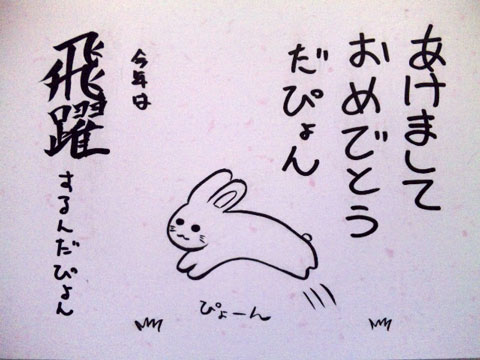 あけまして
おめでとう
だぴょん
ぴょーん
今年は
飛躍
するんだぴょん